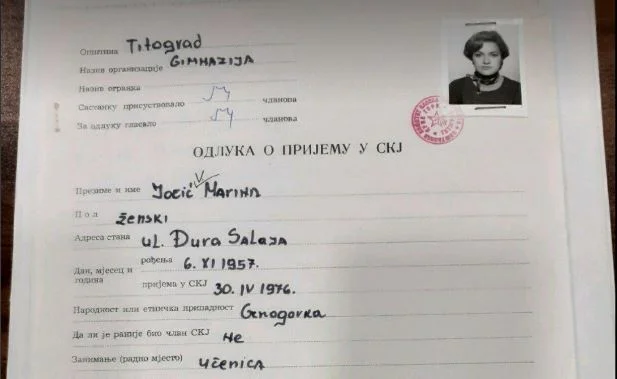 Општина Titograd
Назив организације GIMNAZIJA
Назив огранка
Састанку присуствовало 54 чланова
За одлуку гласало 54 чланова
ОДЛУКА О ПРИЈЕМУ У СКЈ
Презиме и име Jocić Marina
Пол ženski
Адреса стана ul. Đura Salaja
Дан, мјесец и година
рођења 6. XI 1957.
пријема у СКЈ 30. IV 1976.
Народност или етничка припадност Crnogorka
Да ли је раније био члан СКЈ Ne
Занимање (радно мјесто) učenica